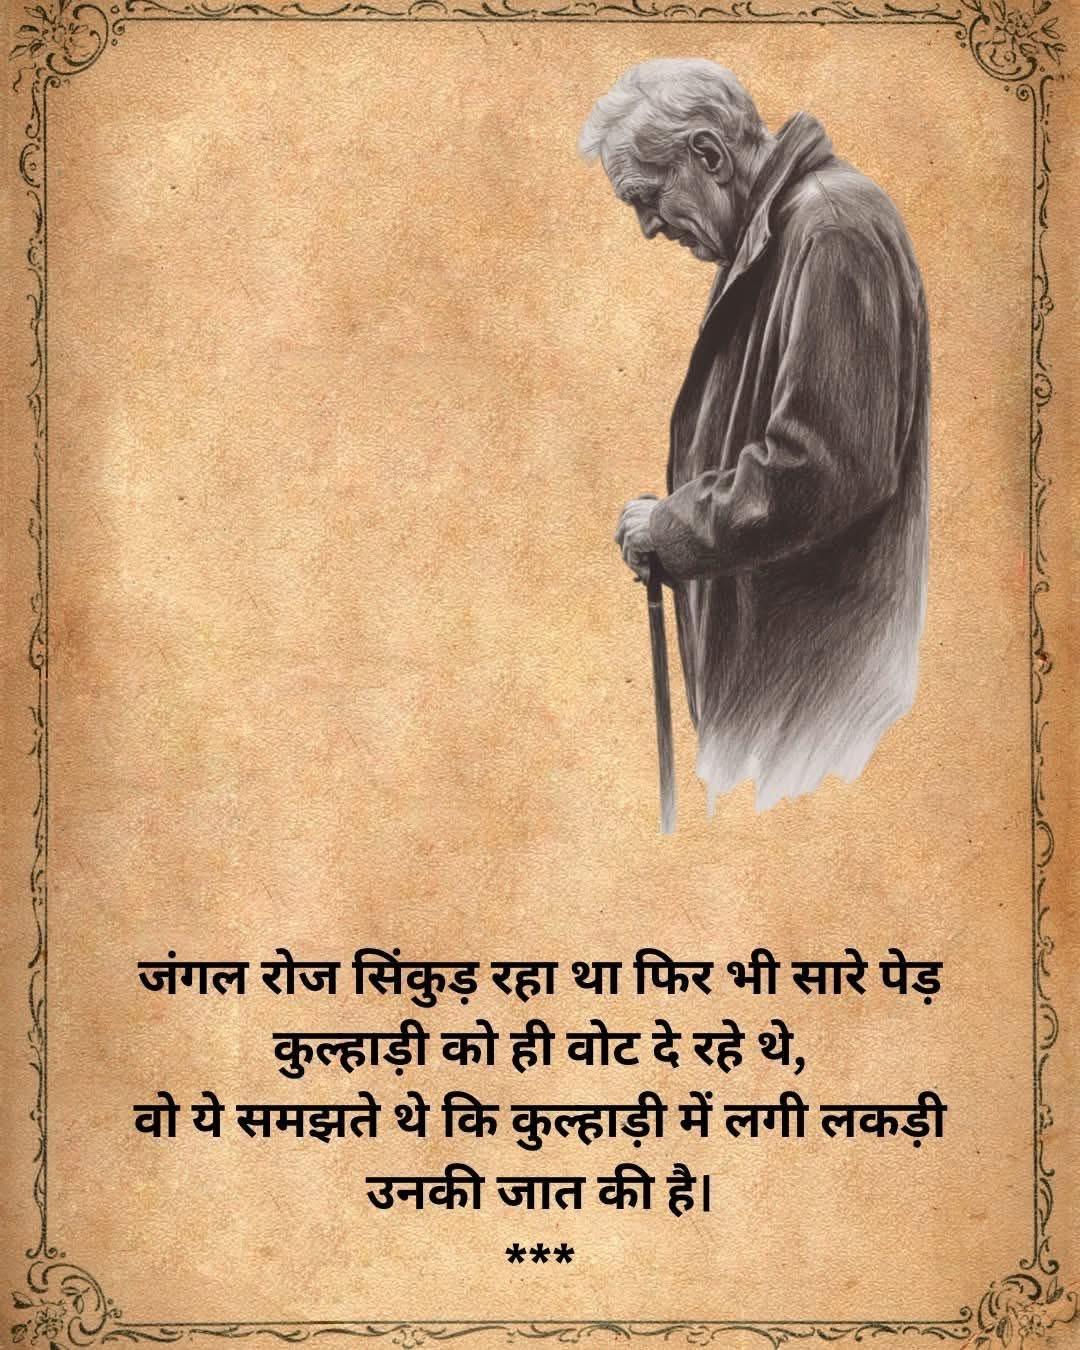 जंगल रोज सिंकुड़ रहा था फिर भी सारे पेड़
कुल्हाड़ी को ही वोट दे रहे थे,
वो ये समझते थे कि कुल्हाड़ी में लगी लकड़ी
उनकी जात की है।
***